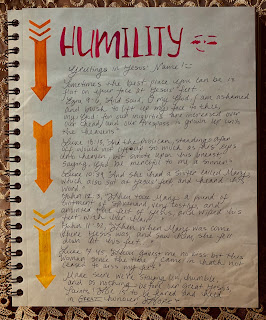 HUMILITY
Greetings in Jesus' Name!
Sometimes the best place you can be is
flat on your face at Jesus' feet.
Ezra 9:6, And said, O my God, I am ashamed
and blush to lift up my face to thee,
my God: for our iniquities are increased over
our head, and our trespass is grown up unto
the heavens.
Luke 18:13, And the publican, standing afar
off, would not lift up so much as his eyes
unto heaven, but smote upon his breast,
saying, God be merciful to me a sinner.
Luke 10:39, And she had a sister called Mary,
which also sat at Jesus' feet, and heard his
word.
John 12:3, Then took Mary a pound of
ointment of spikenard, very costly, and
anointed the feet of Jesus, and wiped his
feet with her hair:
John 11:32, Then when Mary was come
where Jesus was, and saw him, she fell
down at his feet,
Luke 7:45, gavest me no kiss: but this
woman since the time I came in hath not
ceased to kiss my feet.
humbly
and do nothing